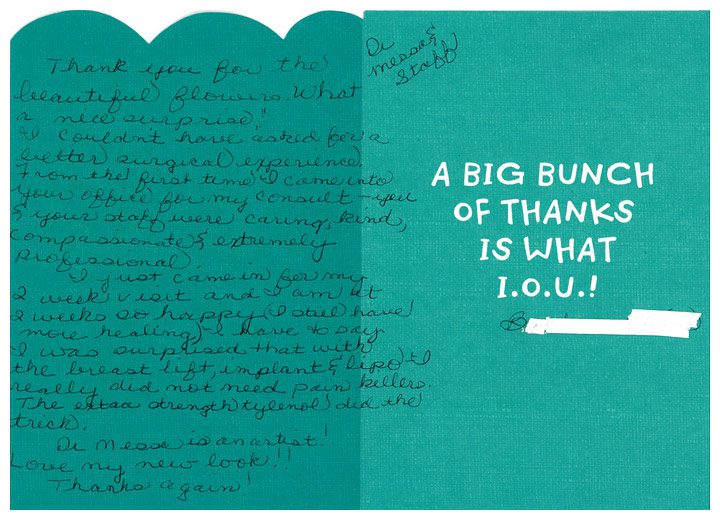 Thank you for the
beautiful flowers. What
a nice surprise"
I couldn't have "asked for a
better surgical experience.
From the first time I came into
your office for my consult - you
& your staff were caring, kind,
compassionate & extremely
professional.
I just came in for my
2 week visit and I am at
2 weeks so happy (I still have
more healing) I have to say
I was surprised that with
the breast lift, implant & lipo - I
really did not need pain killers.
The extra strength tylenol did the
trick.
Dr Messa is an artist!
Love my new look!!
Thanks again!
Dr
Messa &
Staff
A BIG BUNCH
OF THANKS
IS WHAT
I.O.U.!